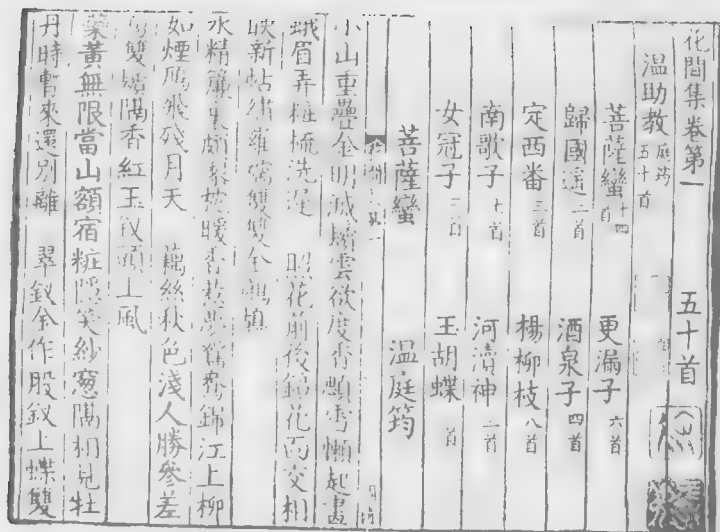 花間集卷第一 五十首
溫助教 庭筠 五十首
菩薩蠻 十四首 更漏子 六首
歸國遥 二首 酒泉子 四首
定西番 三首 楊柳枝 八首
南歌子 七首 河瀆神 三首
女冠子 二首 玉胡蝶 首
菩薩蠻 溫庭筠
小山重疊金明滅鬢雲欲度香顋雪懶起畫
蛾眉弄粧梳洗遲 照花前後鏡花面交相
映新帖繡羅襦雙雙金鷓鴣
水精簾裏頗黎枕暖香惹夢鴛鴦錦江上柳
如煙鴈飛殘月天 藕絲秋色淺人勝參差
雙鬢隔香紅玉釵頭上風
蘂黃無限當山額宿粧隱笑紗窓隔相見牡
丹時暫來還別離 翠釵金作股釵上蝶雙